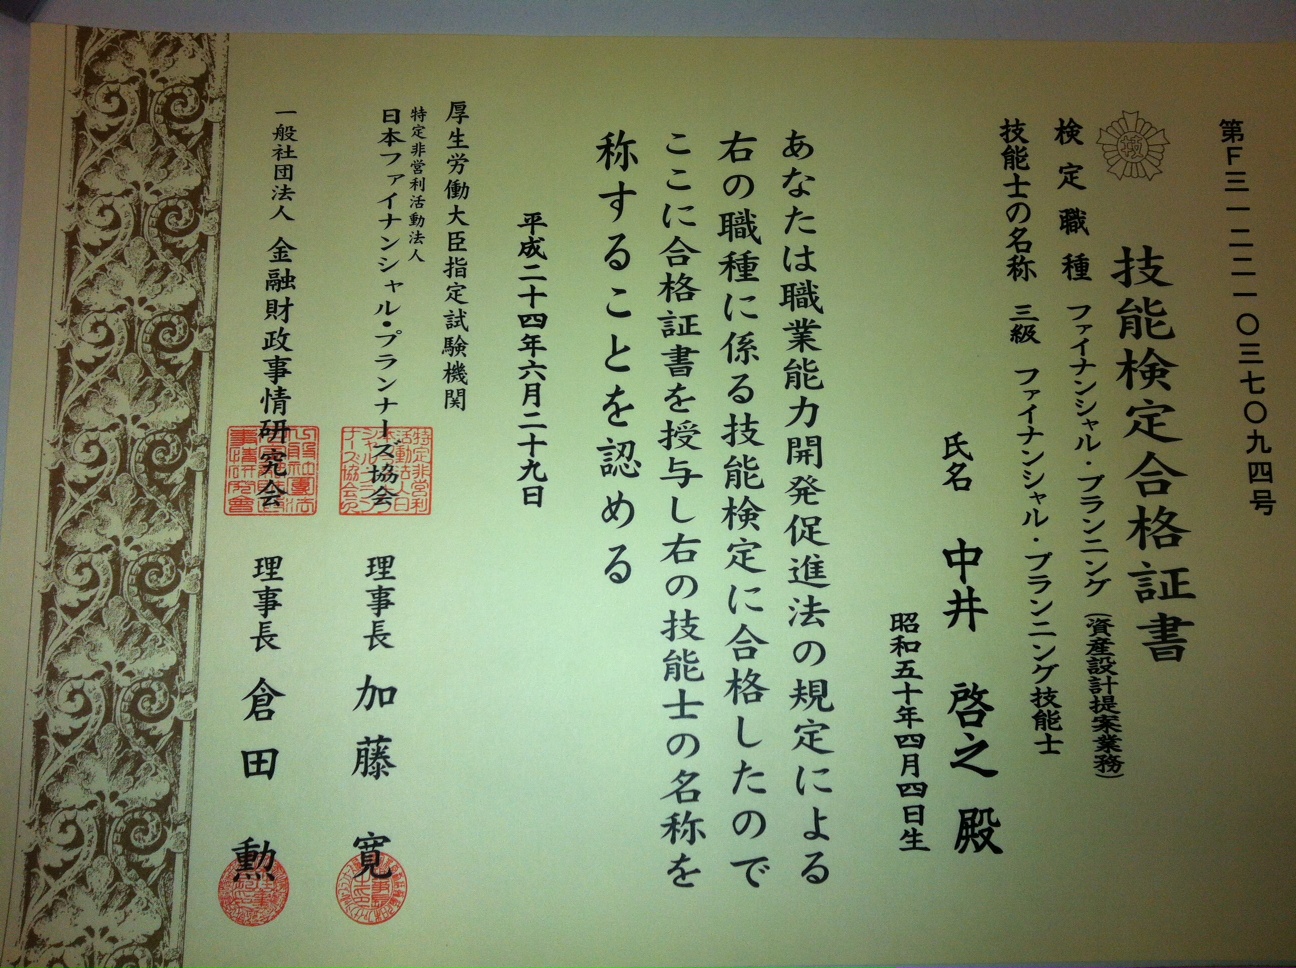 第F三一二二一〇三七〇九四号
技能検定合格証書
検定職種 ファイナンシャル・プランニング(資産設計提案業務)
技能士の名称 三級 ファイナンシャル・プランニング技能士
氏名 中井 啓之 殿
昭和五十年四月四日生
あなたは職業能力開発促進法の規定による
右の職種に係る技能検定に合格したので
ここに合格証書を授与し右の技能士の名称を
称することを認める
平成二十四年六月二十九日
厚生労働大臣指定試験機関
特定非営利活動法人
日本ファイナンシャル・プランナーズ協会 理事長 加藤 寛
一般社団法人 金融財政事情研究会 理事長 倉田 勲